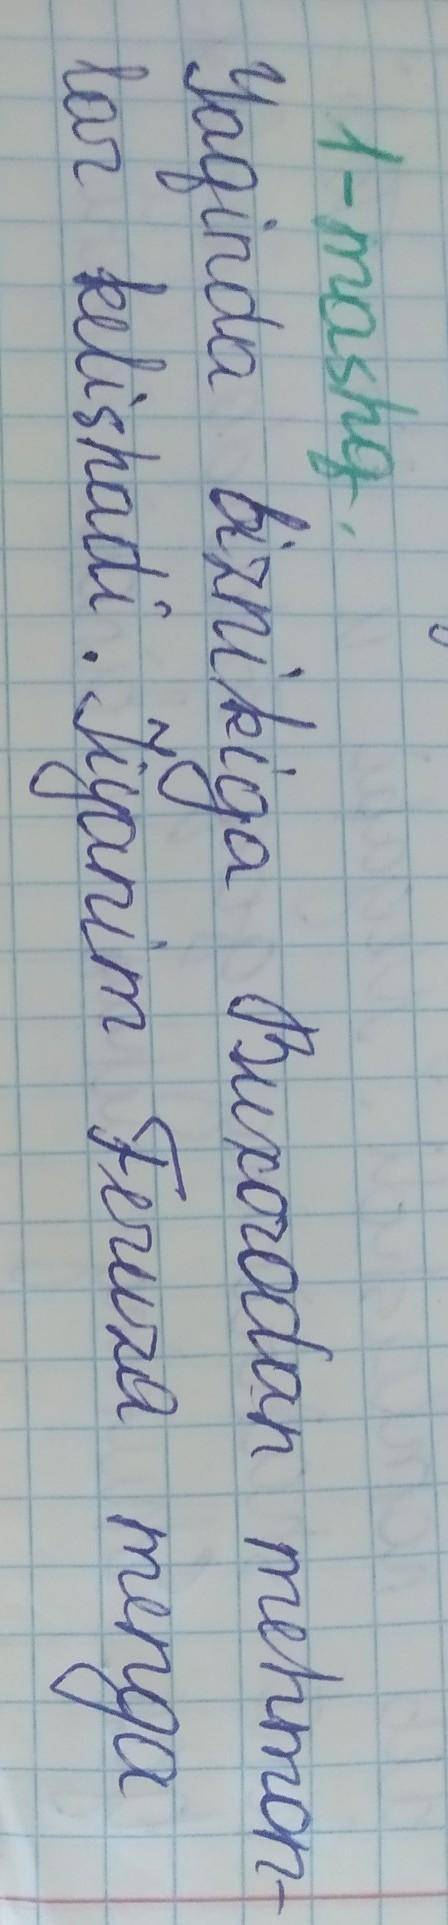 1-mashq.
Yaqinda biznikiga Buxorodan mehmon-
lar kelishadi. Jiyanim Feruza menga